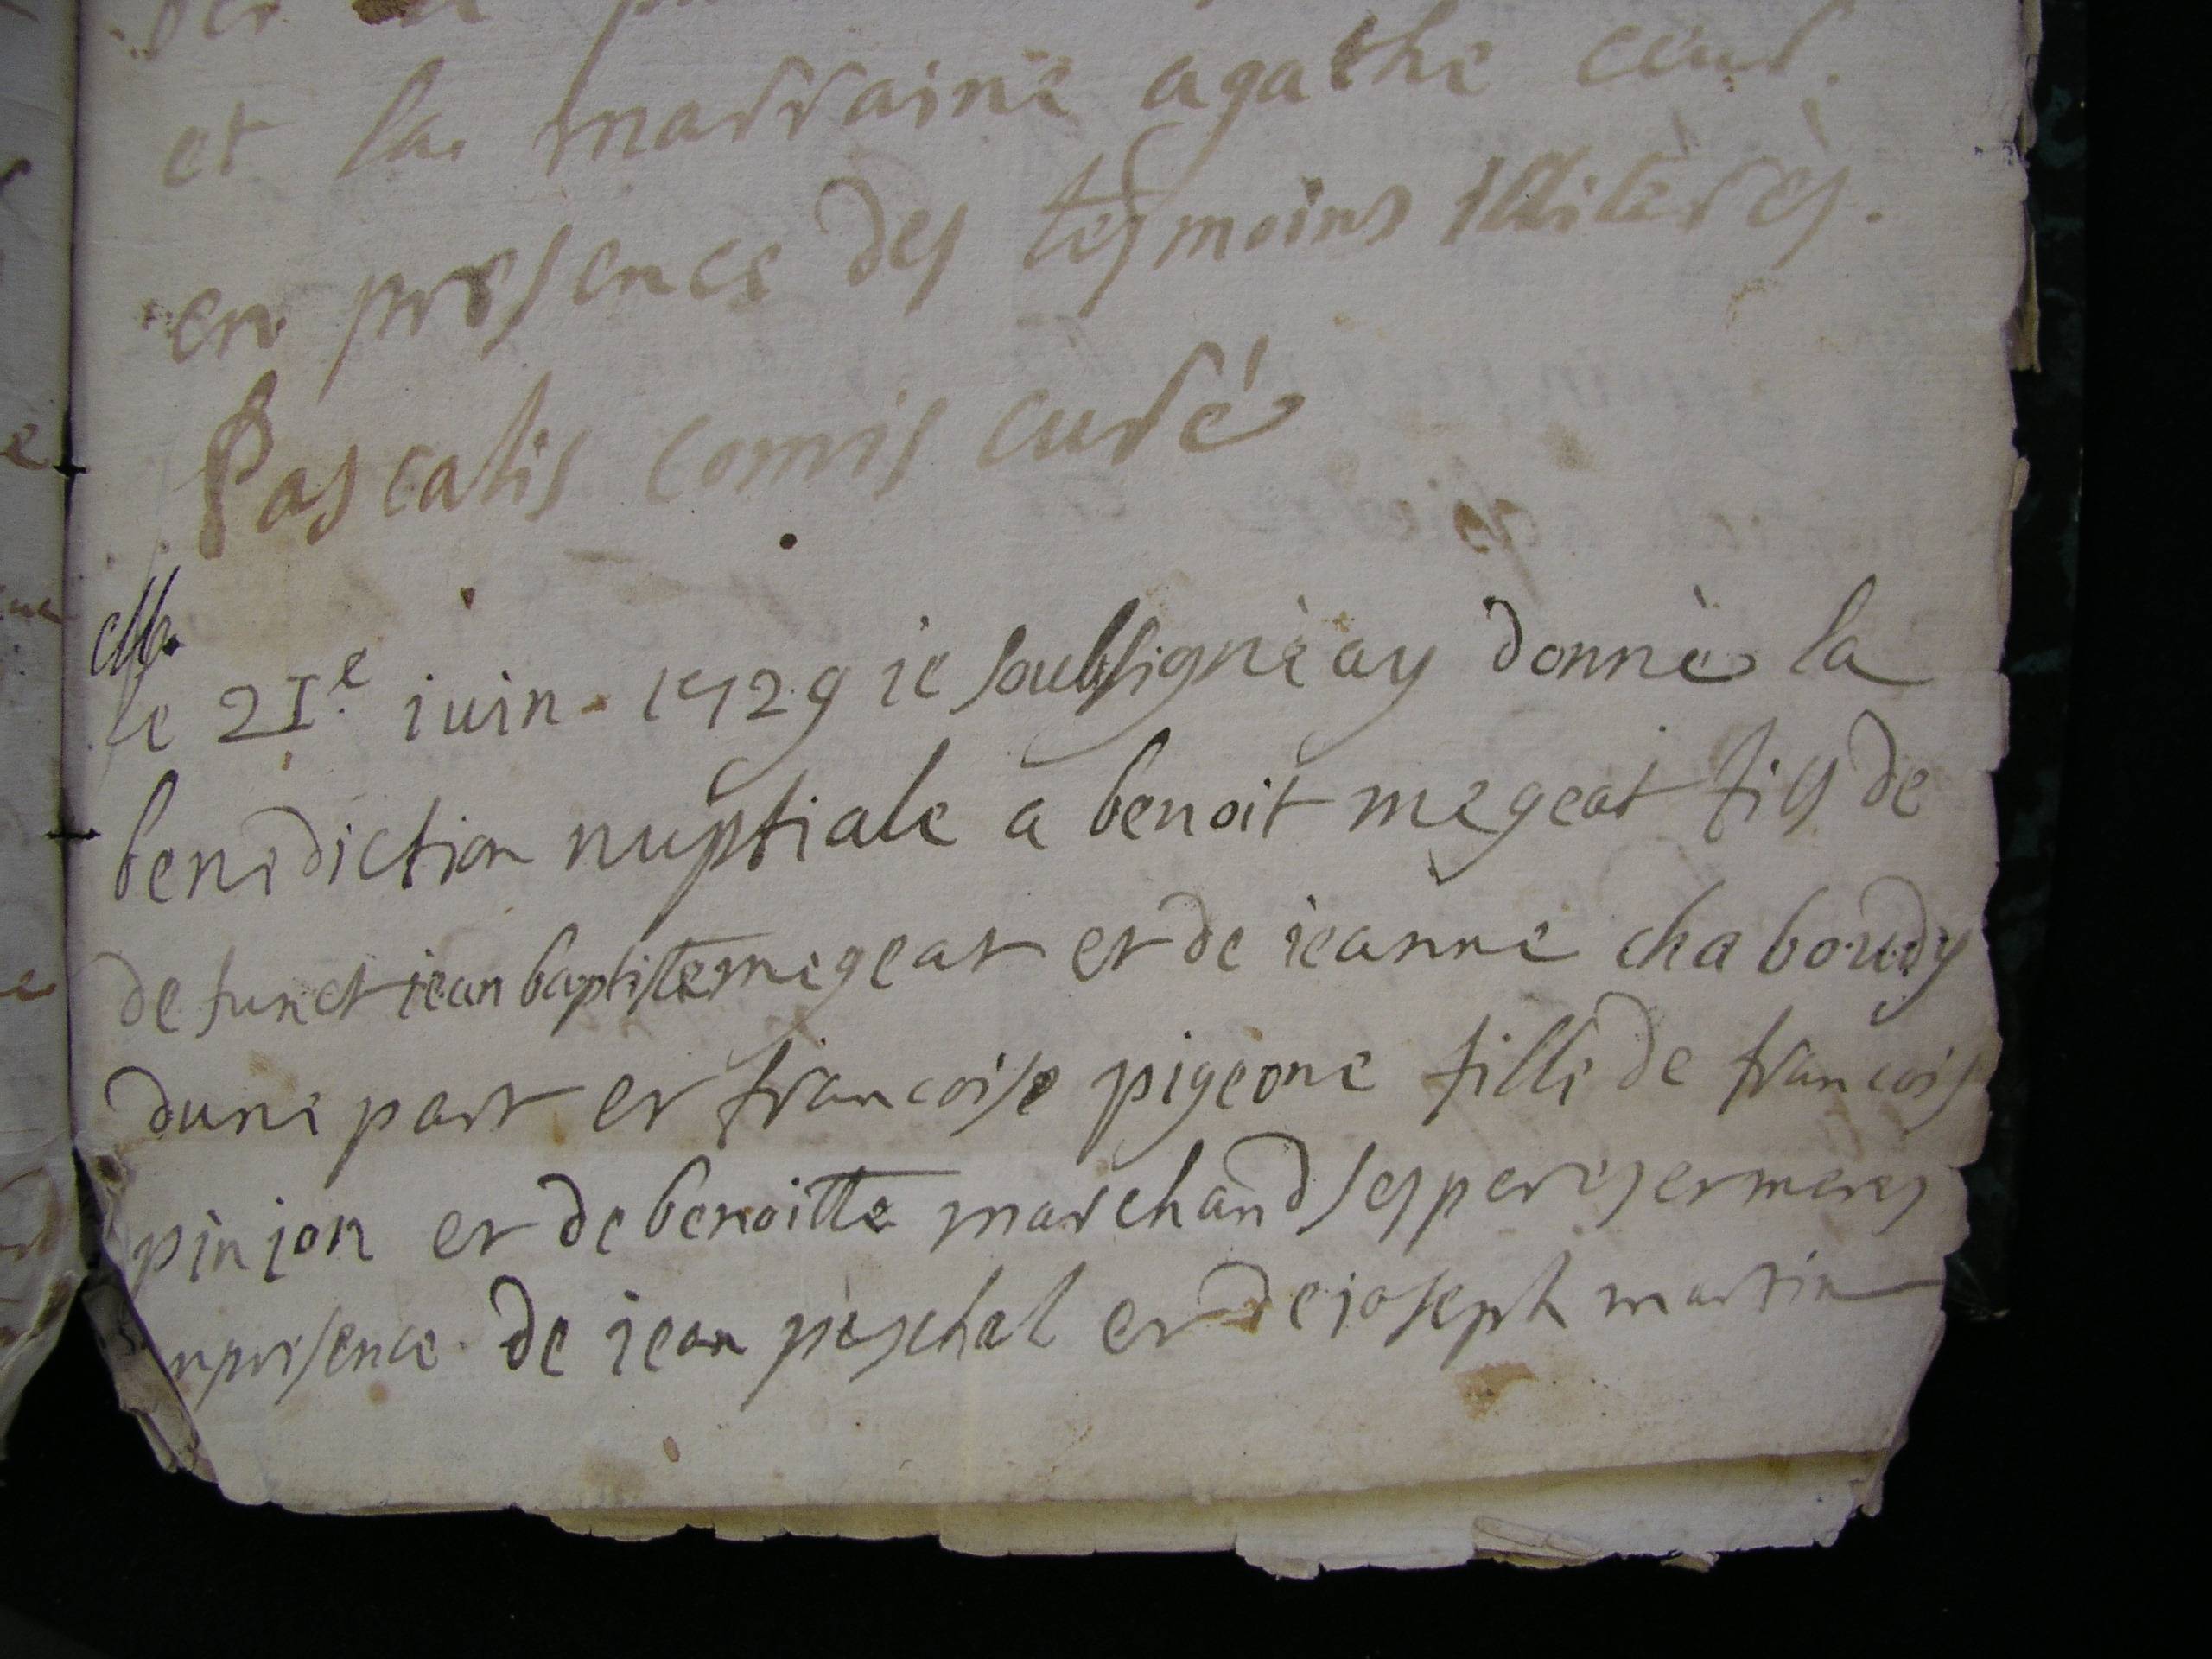 et la marraine agathe
en presence des tesmoins illitèrès.
Pascalis comis curé
M.
le 21e iuin 1729 ie soubsignè ay donnè la
benediction nuptiale a benoit megeat fils de
defunct iean baptiste megeat et de ieanne chaboudy
dune part et francoise pigeone fille de francois
pinion et de benoitte marchand ses peres et meres
npresence de iean peschal et de joseph martin